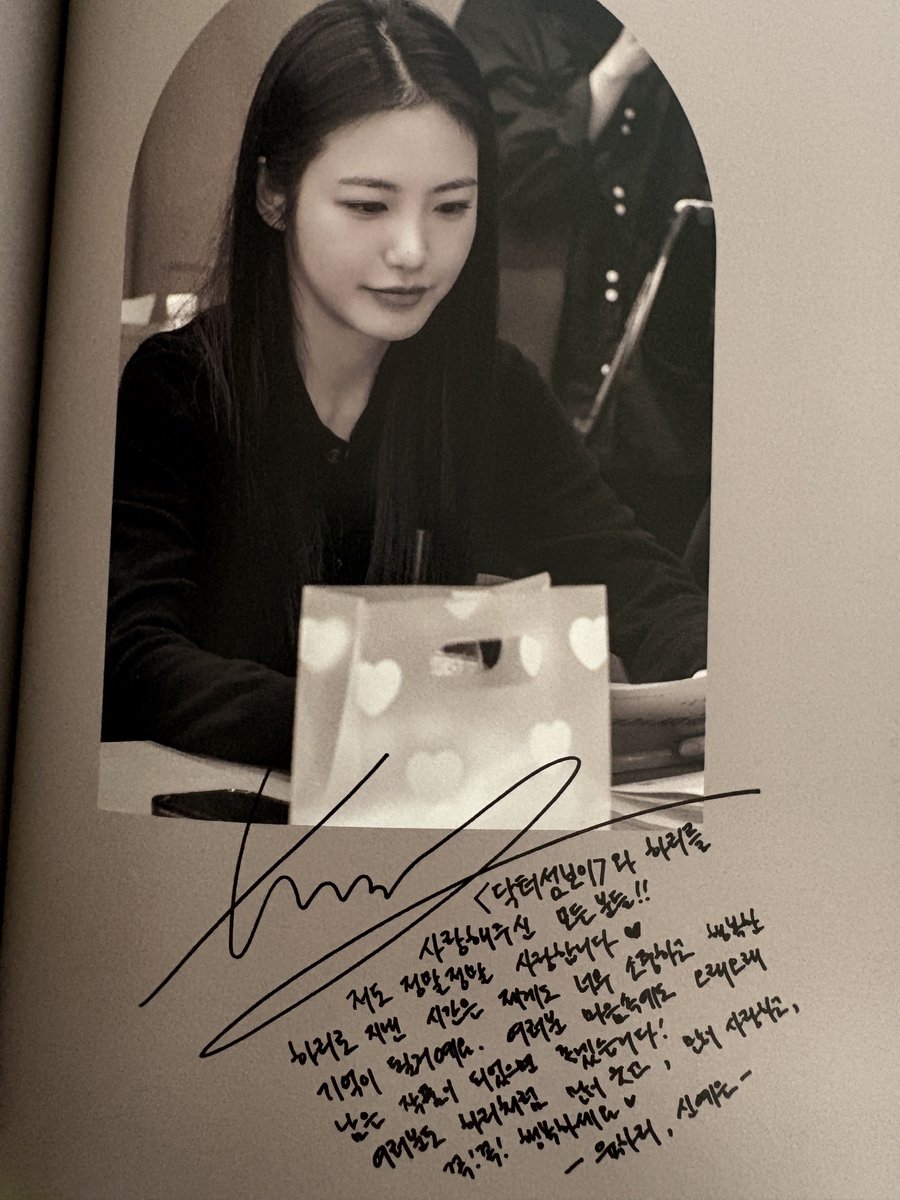 <닥터섬보이>와 하리를
사랑해주신 모든 분들!!
저도 정말정말 사랑합니다♥
하리로 지낸 시간은 제게도 너무 소중하고 행복한
기억이 될거예요. 여러분 마음속에도 오래오래
남은 작품이 되었으면 좋겠습니다!
여러분도 하리처럼 많이 웃고, 많이 사랑하고,
꼭!꼭! 행복하세요♥
- 육하리, 신예은 -